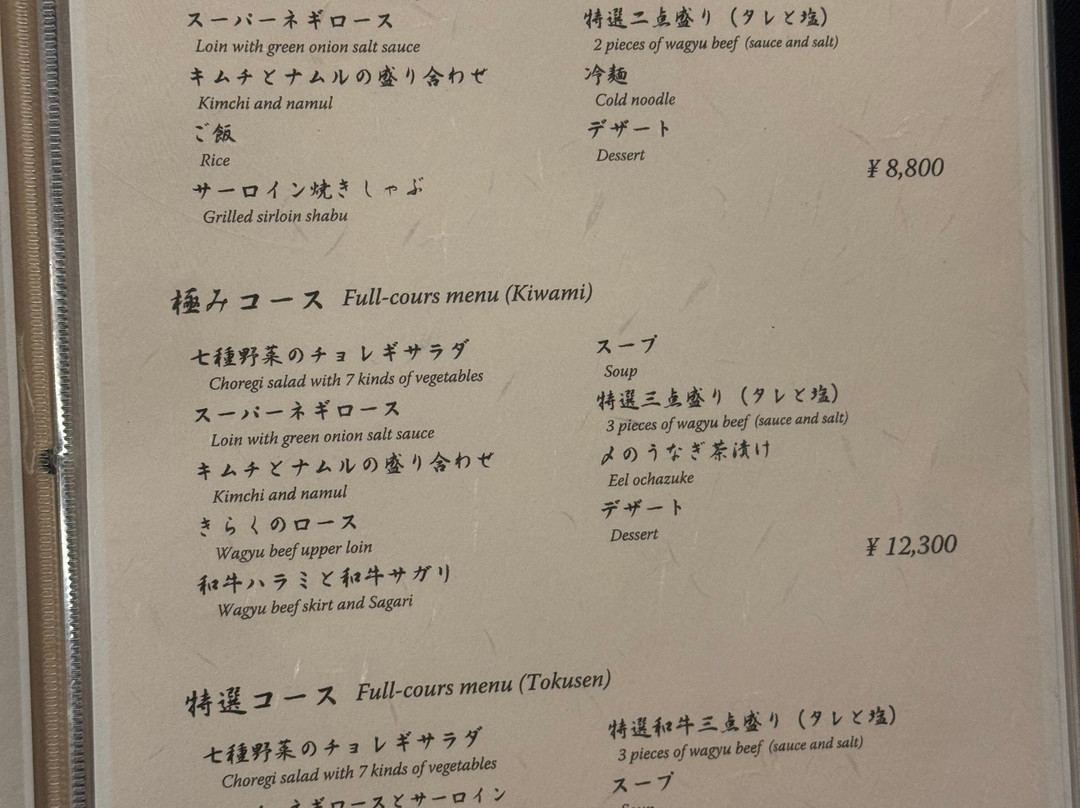 スーパーネギロース
Loin with green onion salt sauce
キムチとナムルの盛り合わせ
Kimchi and namul
ご飯
Rice
サーロイン焼きしゃぶ
Grilled sirloin shabu
特選二点盛り（タレと塩）
2 pieces of wagyu beef (sauce and salt)
冷麺
Cold noodle
デザート
Dessert
¥ 8,800
極みコース Full-cours menu (Kiwami)
七種野菜のチョレギサラダ
Choregi salad with 7 kinds of vegetables
スーパーネギロース
Loin with green onion salt sauce
キムチとナムルの盛り合わせ
Kimchi and namul
きらくのロース
Wagyu beef upper loin
和牛ハラミと和牛サガリ
Wagyu beef skirt and Sagari
スープ
Soup
特選三点盛り（タレと塩）
3 pieces of wagyu beef (sauce and salt)
〆のうなぎ茶漬け
Eel ochazuke
デザート
Dessert
¥ 12,300
特選コース Full-cours menu (Tokusen)
七種野菜のチョレギサラダ
Choregi salad with 7 kinds of vegetables
ネギロースとサーロイン
特選和牛三点盛り（タレと塩）
3 pieces of wagyu beef (sauce and salt)
スープ